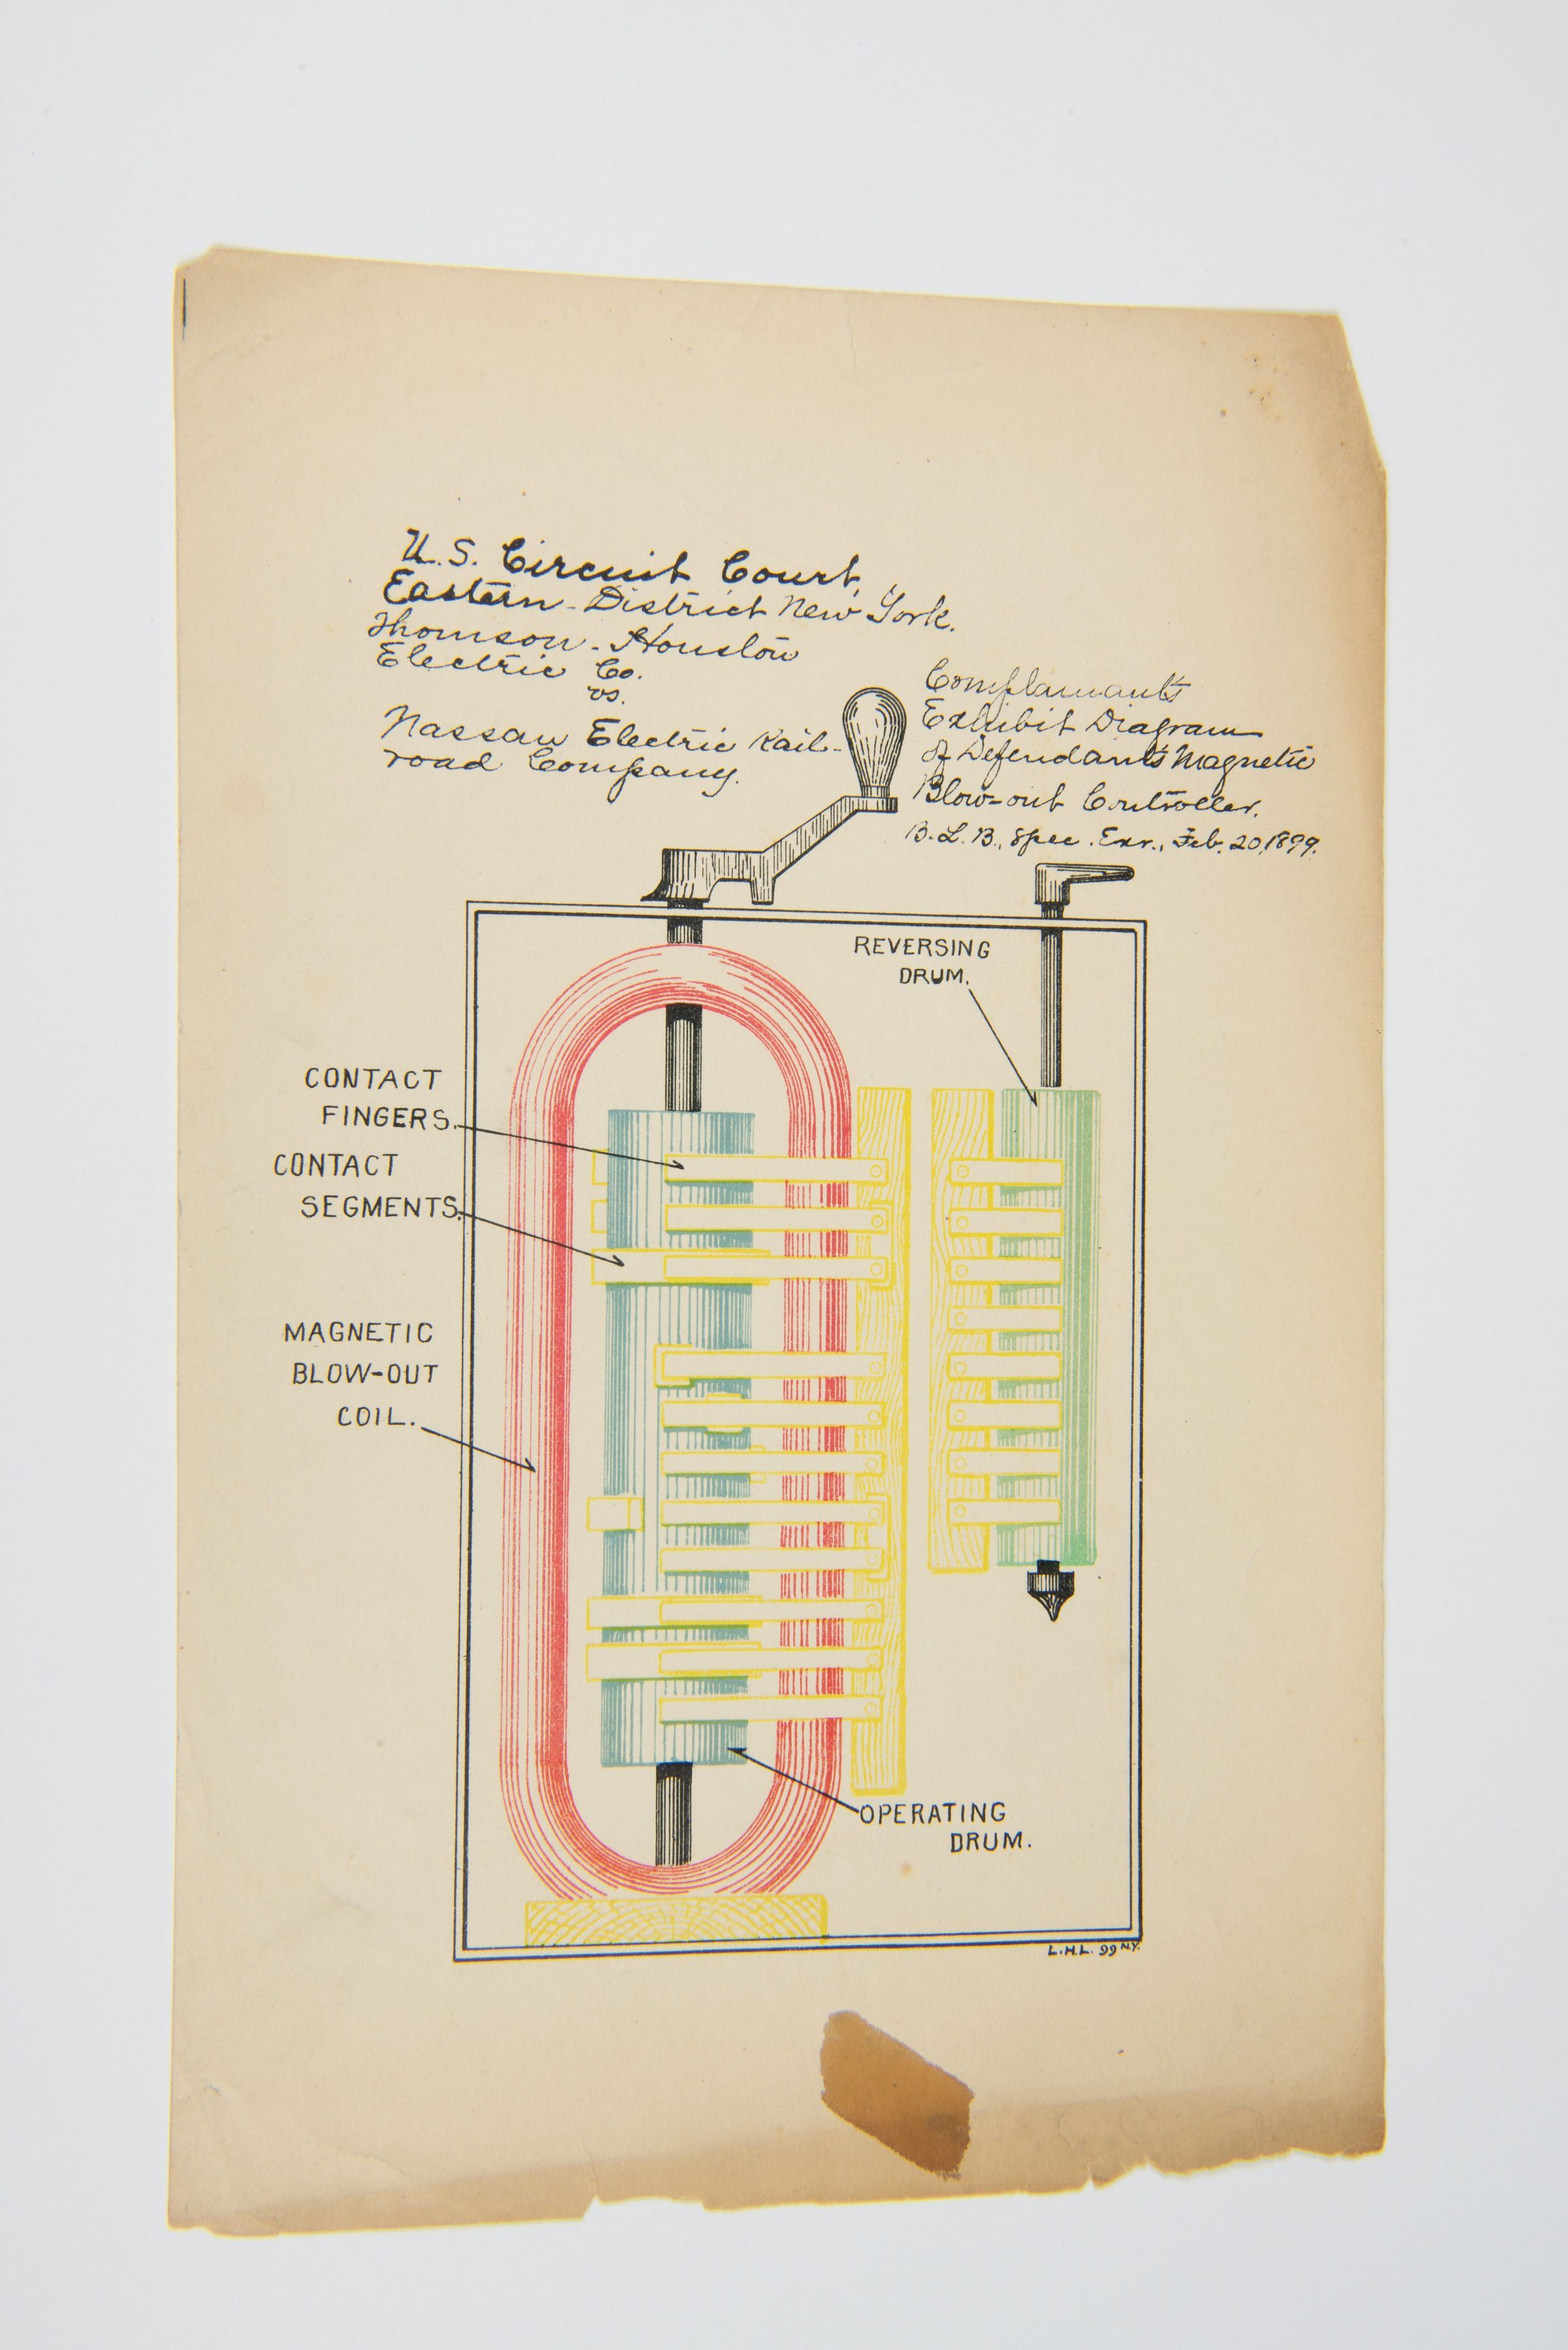 U.S. Circuit Court,
Eastern District New York.
Thomson-Houston
Electric Co.
vs.
Nassau Electric Rail-
road Company.
Complainant's
Exhibit Diagram
of Defendant's Magnetic
Blow-out Controller.
B.L.B., Spec. Exr., Feb. 20, 1899.
REVERSING
DRUM.
CONTACT
FINGERS.
CONTACT
SEGMENTS.
MAGNETIC
BLOW-OUT
COIL.
OPERATING
DRUM.
L.H.L. 99 N.Y.